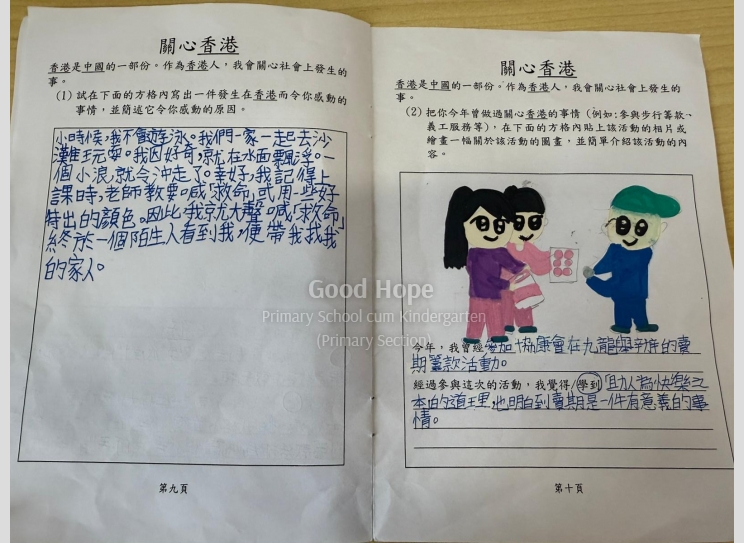 關心香港
香港是中國的一部份。作為香港人，我會關心社會上發生的
事。
(1) 試在下面的方格內寫出一件發生在香港而令你感動的
事情，並簡述它令你感動的原因。
小時候，我不會游泳。我們一家一起去沙
灘玩耍。我因好奇，就在水面飄浮。一
個小浪，就令沖走了。幸好，我記得上
課時，老師教要喊「救命」或用一些好
特出的顏色。因此，我就大聲喊「救命」
終於一個陌生人看到我，便帶我找我
的家人。
第九頁
關心香港
香港是中國的一部份。作為香港人，我會關心社會上發生的
事。
(2) 把你今年曾做過關心香港的事情（例如：參與步行籌款、
義工服務等），在下面的方格內貼上該活動的相片或
繪畫一幅關於該活動的圖畫，並簡單介紹該活動的內
容。
今年，我曾經參加協康會在九龍舉辦的賣
期籌款活動。
經過參與這次的活動，我覺得/學到「助人為快樂之
本」的道理，也明白到賣期是一件有意義的事
情。
第十頁
Good Hope
Primary School cum Kindergarten
(Primary Section)